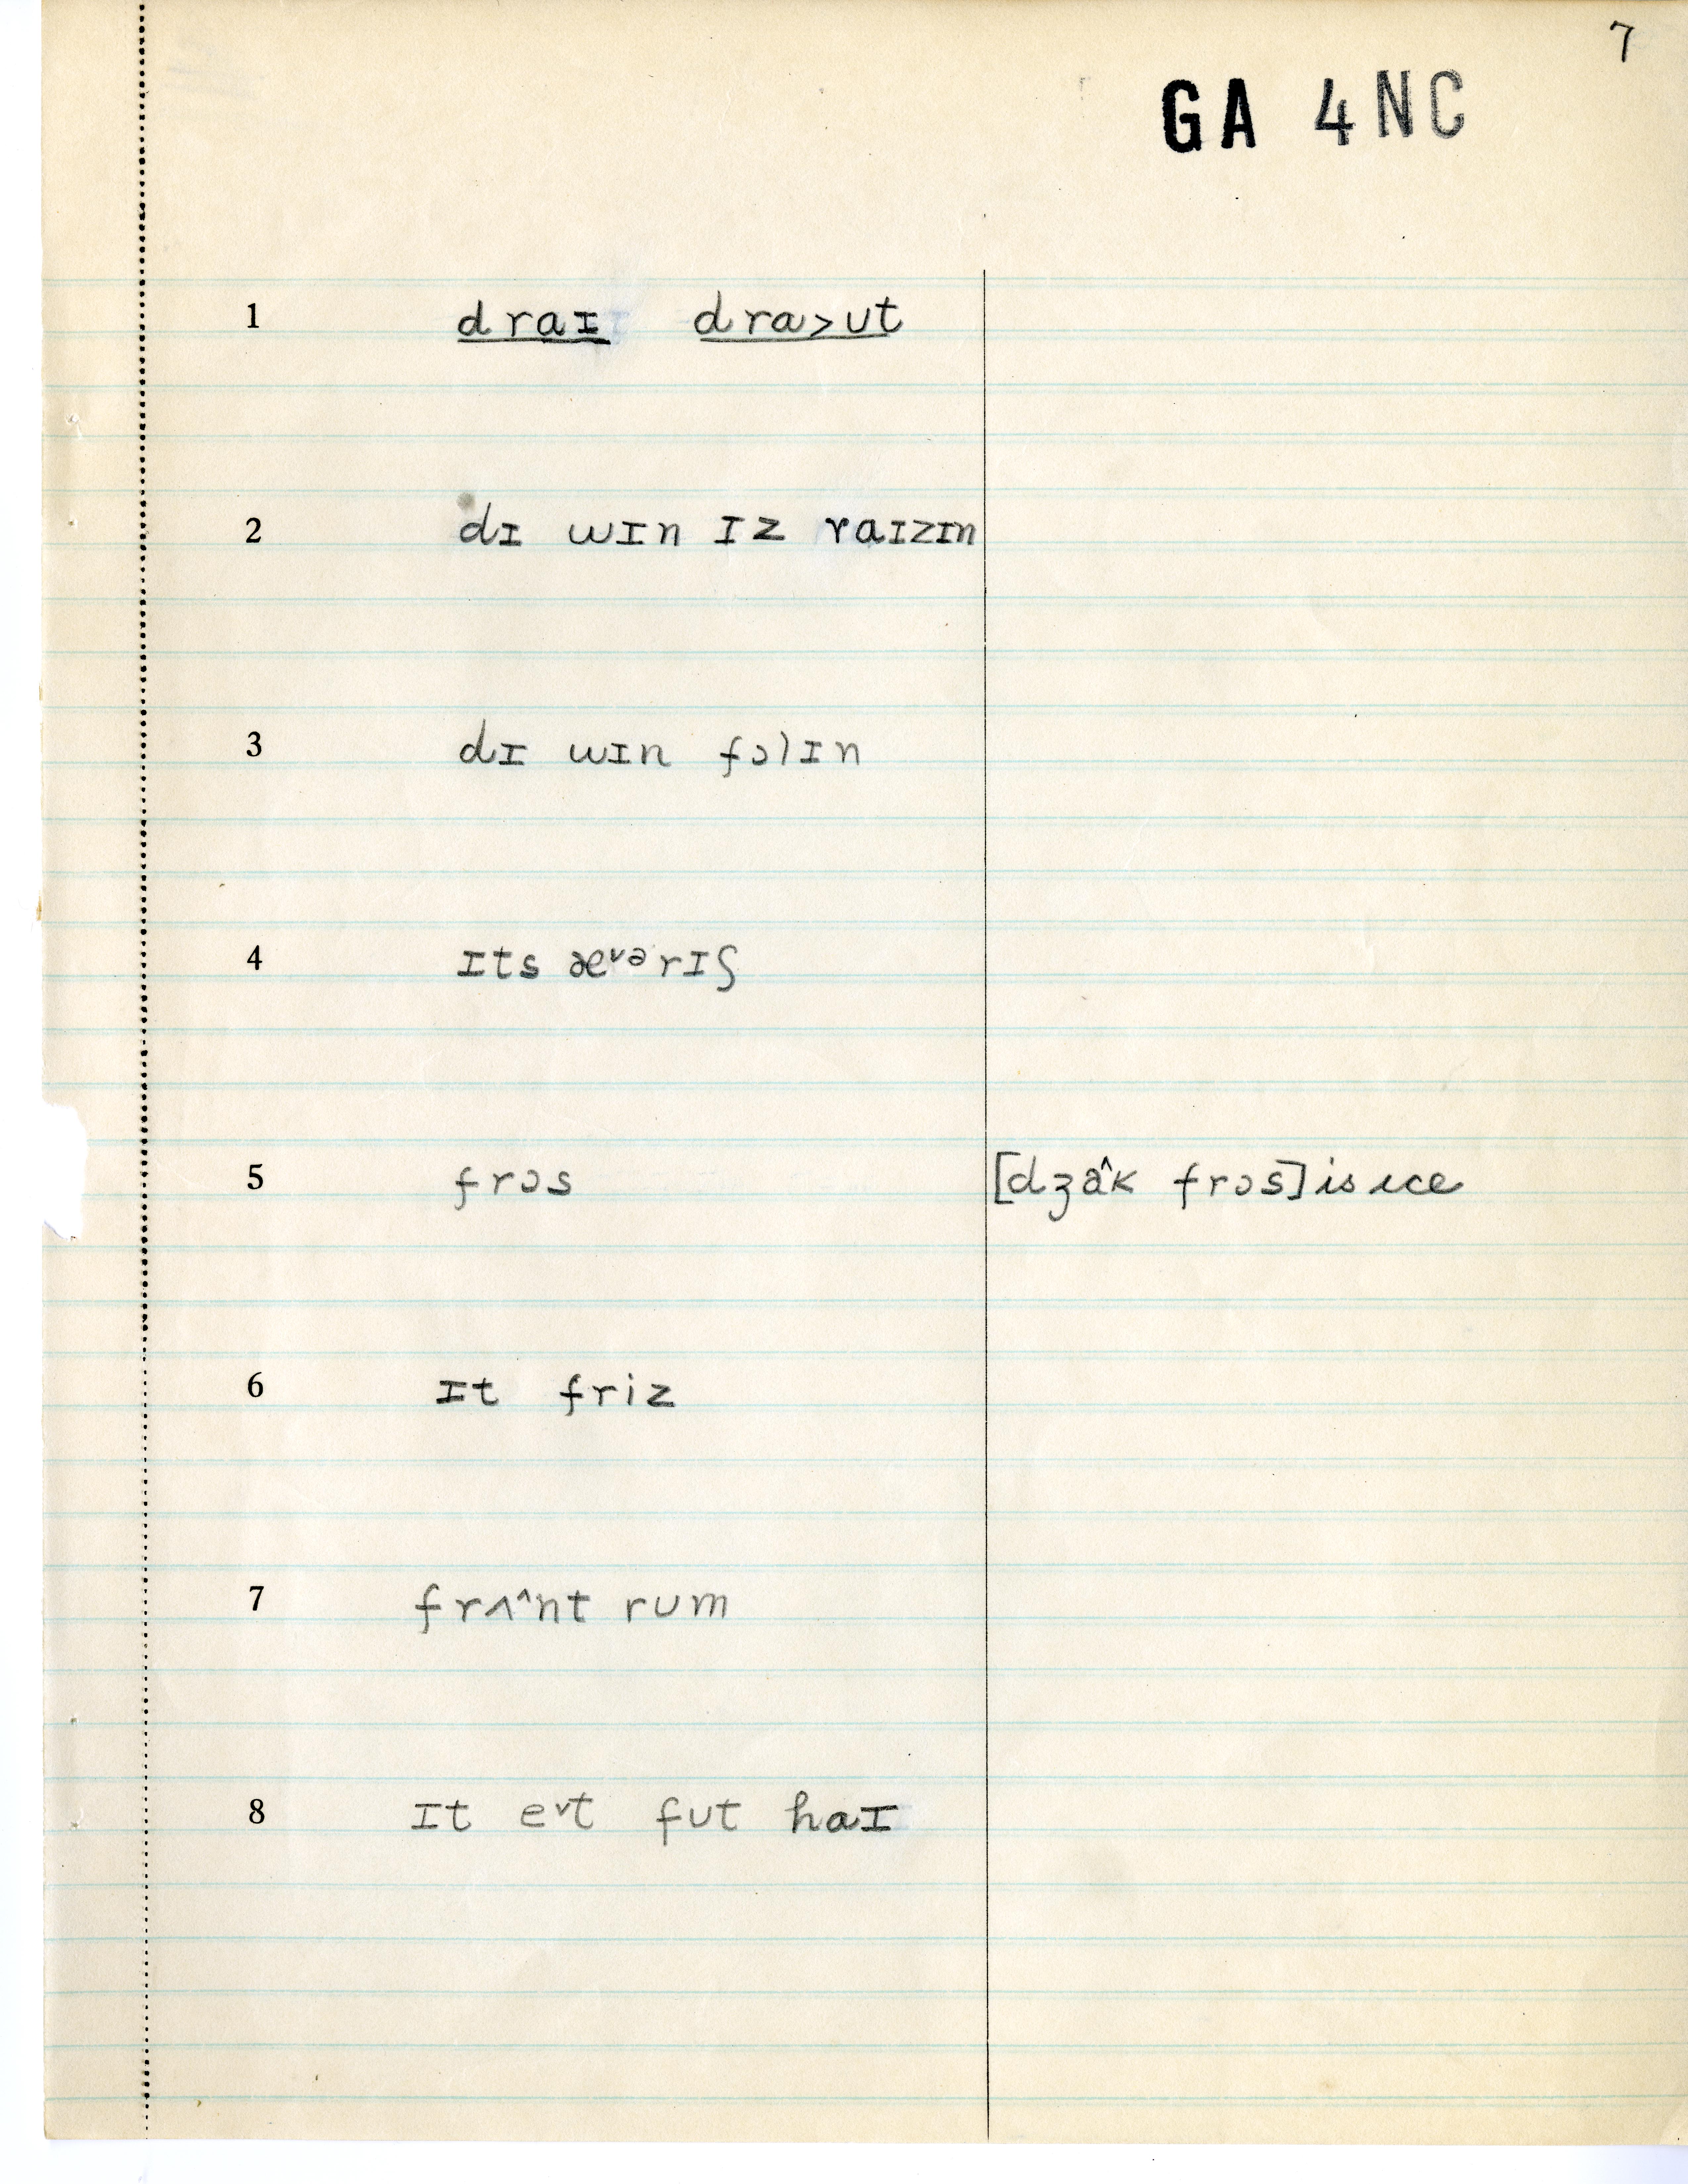 7
GA 4NC
1 draɪ dra>ʊt
2 dɪ wɪn ɪz raɪzɪn
3 dɪ wɪn fɔlɪn
4 ɪts æ˅ᵊrɪʃ
5 frɔs [dʒâ^k frɔs] is ice
6 ɪt friz
7 frʌ^nt rum
8 ɪt e˅t fʊt haɪ